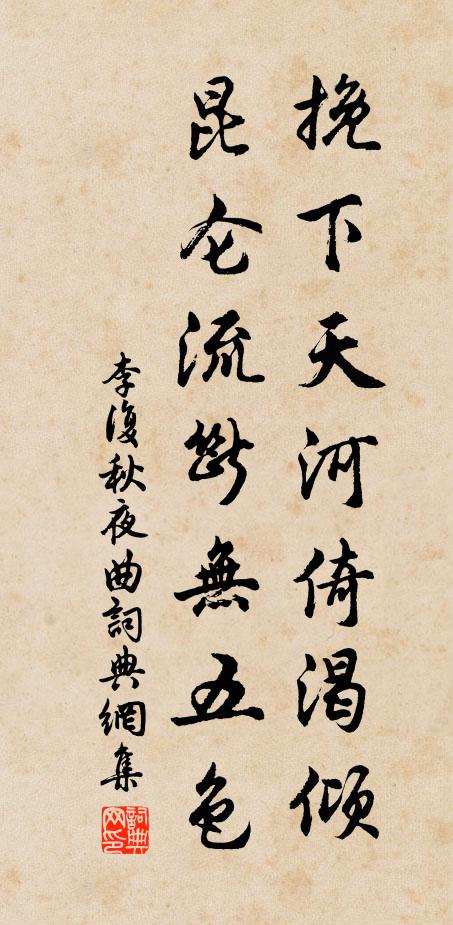 挽下天河倚渴傾
昆仑流斷無五色
李復秋夜曲詞典網集
詞典网印